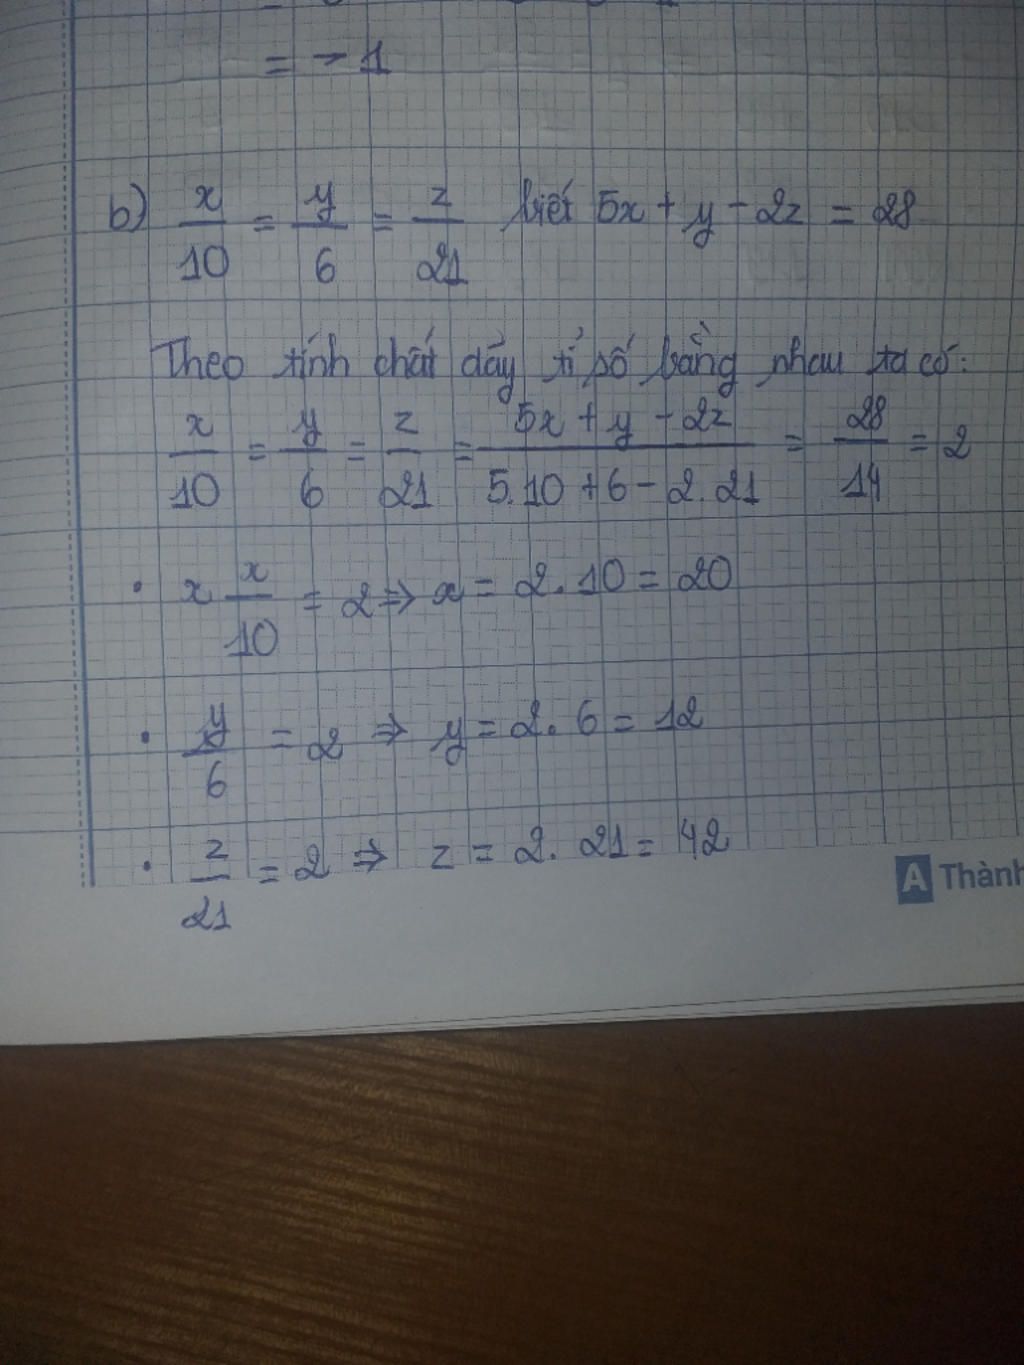 = - 1
b) x/10 = y/6 = z/21 biết 5x + y - 2z = 28
Theo tính chất dãy tỉ số bằng nhau ta có:
x/10 = y/6 = z/21 = (5x + y - 2z)/(5.10 + 6 - 2.21) = 28/14 = 2
• x x/10 = 2 => x = 2.10 = 20
• y/6 = 2 => y = 2.6 = 12
• z/21 = 2 => z = 2.21 = 42
A Thành